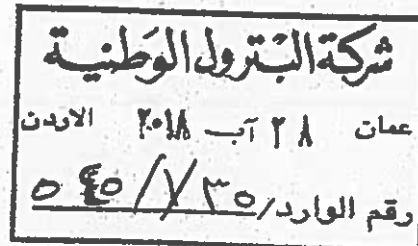 شركة البترول الوطنية
عمان ٢٨ آب ٢٠١٨ الاردن
رقم الوارد/٥٤٥/٧/٣٥